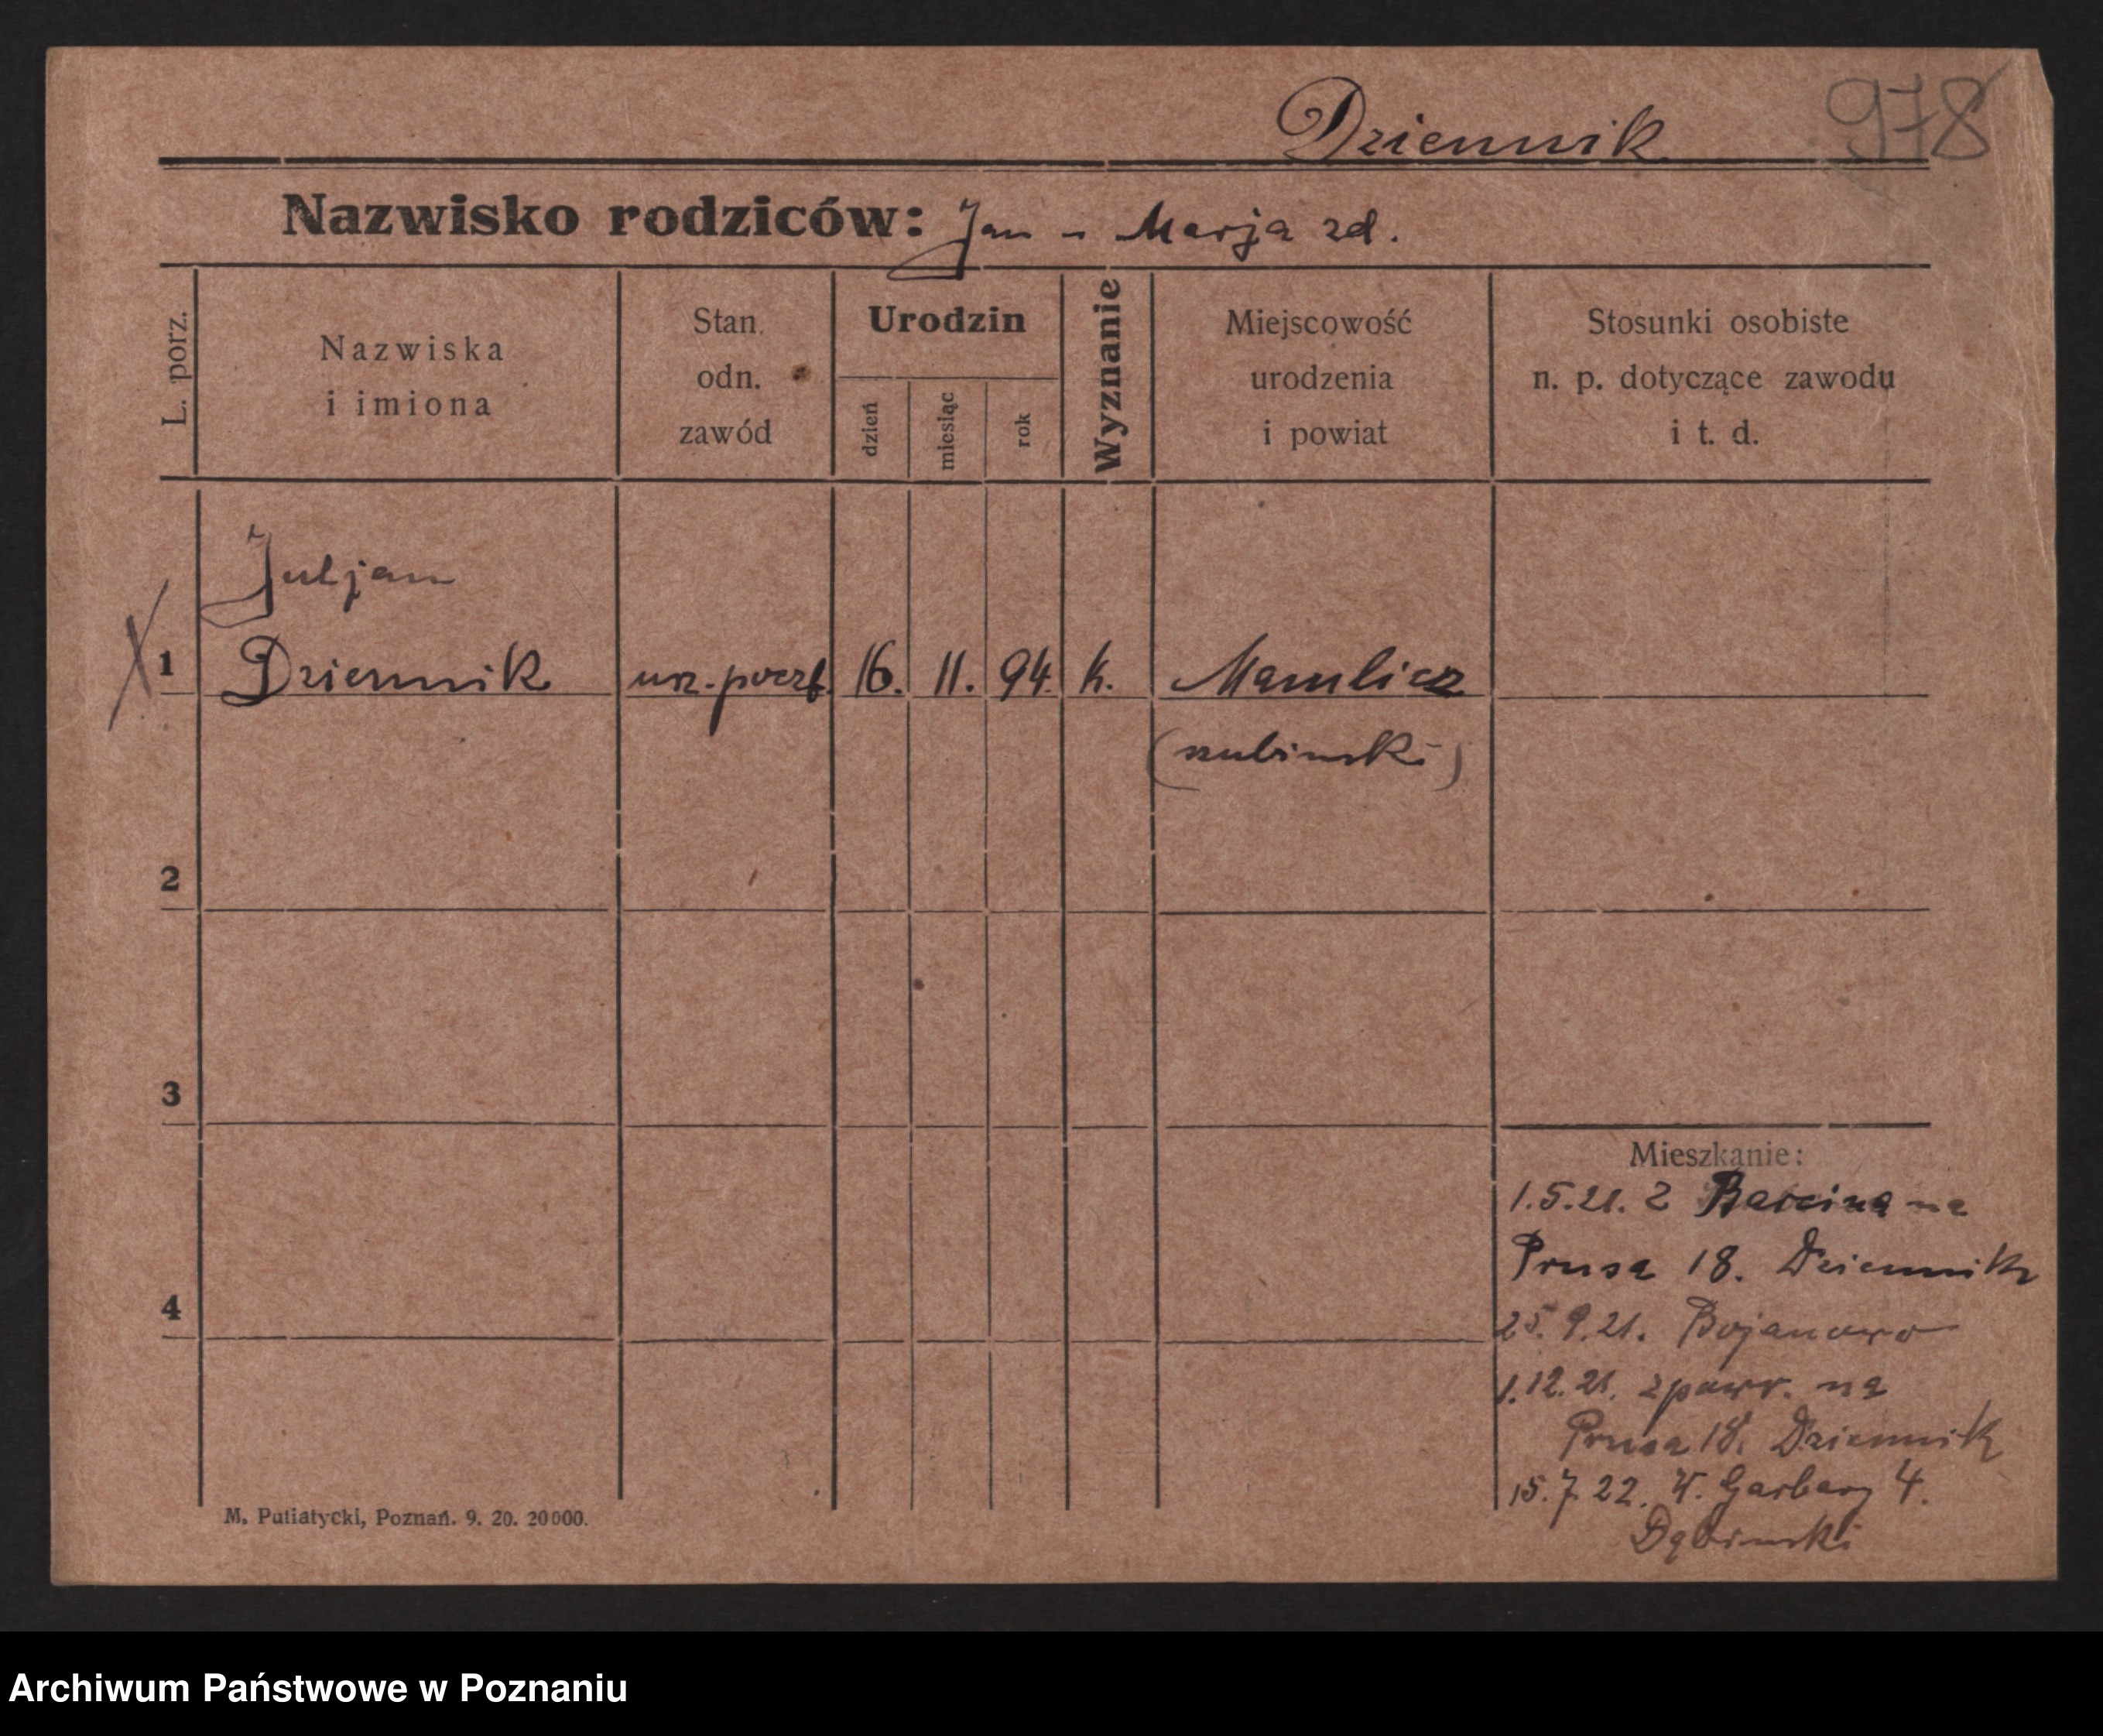 Dziennik 978
Nazwisko rodziców: Jan - Marja zd.
L. porz.
Nazwiska
i imiona
Stan.
odn.
zawód
Urodzin
dzień
miesiąc
rok
Wyznanie
Miejscowość
urodzenia
i powiat
Stosunki osobiste
n. p. dotyczące zawodu
i t. d.
Juljan
1 Dziennik urz. poczt. 16. 11. 94. k. Mamlicz
(szubinski)
2
3
4
Mieszkanie:
1.5.21. z Barcina na
Prusa 18. Dziennik
25.9.21. Bojanowo
1.12.21. zpowr. na
Prusa 18. Dziennik
15.7.22. W. Garbary 4.
Dąbinski
M. Putiatycki, Poznań. 9. 20. 20000.
Archiwum Państwowe w Poznaniu